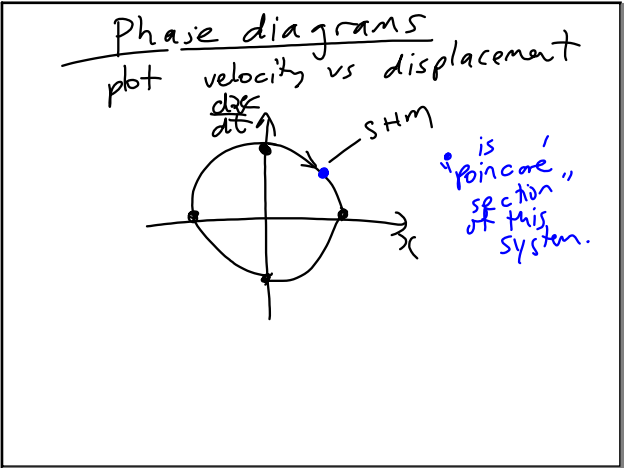 Phase diagrams
plot velocity vs displacement
dx/dt
SHM
x
• is
"poincare"
section
of this
system.